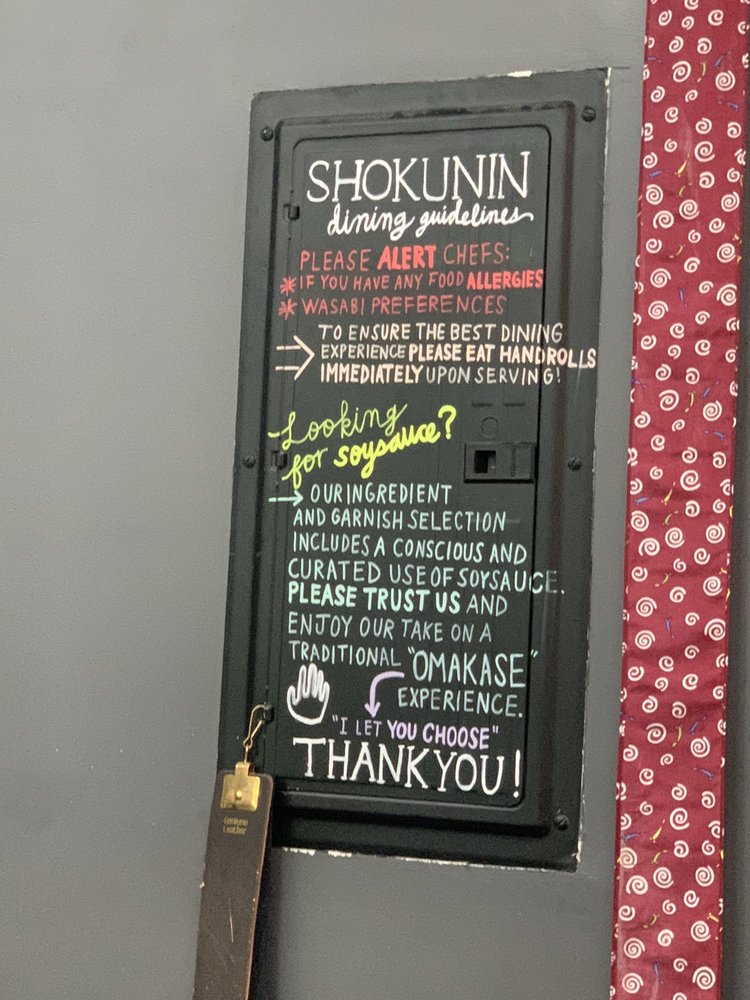 SHOKUNIN
dining guidelines
PLEASE ALERT CHEFS:
* IF YOU HAVE ANY FOOD ALLERGIES
* WASABI PREFERENCES
TO ENSURE THE BEST DINING
EXPERIENCE PLEASE EAT HANDROLLS
IMMEDIATELY UPON SERVING!
Looking
for soysauce?
OUR INGREDIENT
AND GARNISH SELECTION
INCLUDES A CONSCIOUS AND
CURATED USE OF SOYSAUCE.
PLEASE TRUST US AND
ENJOY OUR TAKE ON A
TRADITIONAL "OMAKASE"
EXPERIENCE.
"I LET YOU CHOOSE"
THANK YOU!
Genuine
Leather